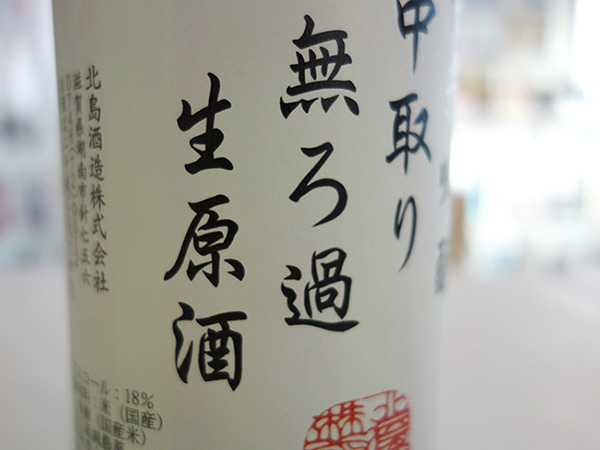 中取り
無ろ過
生原酒
北島酒造株式会社
滋賀県湖南市針七五六
コール：18%
：米（国産）
（国産米）